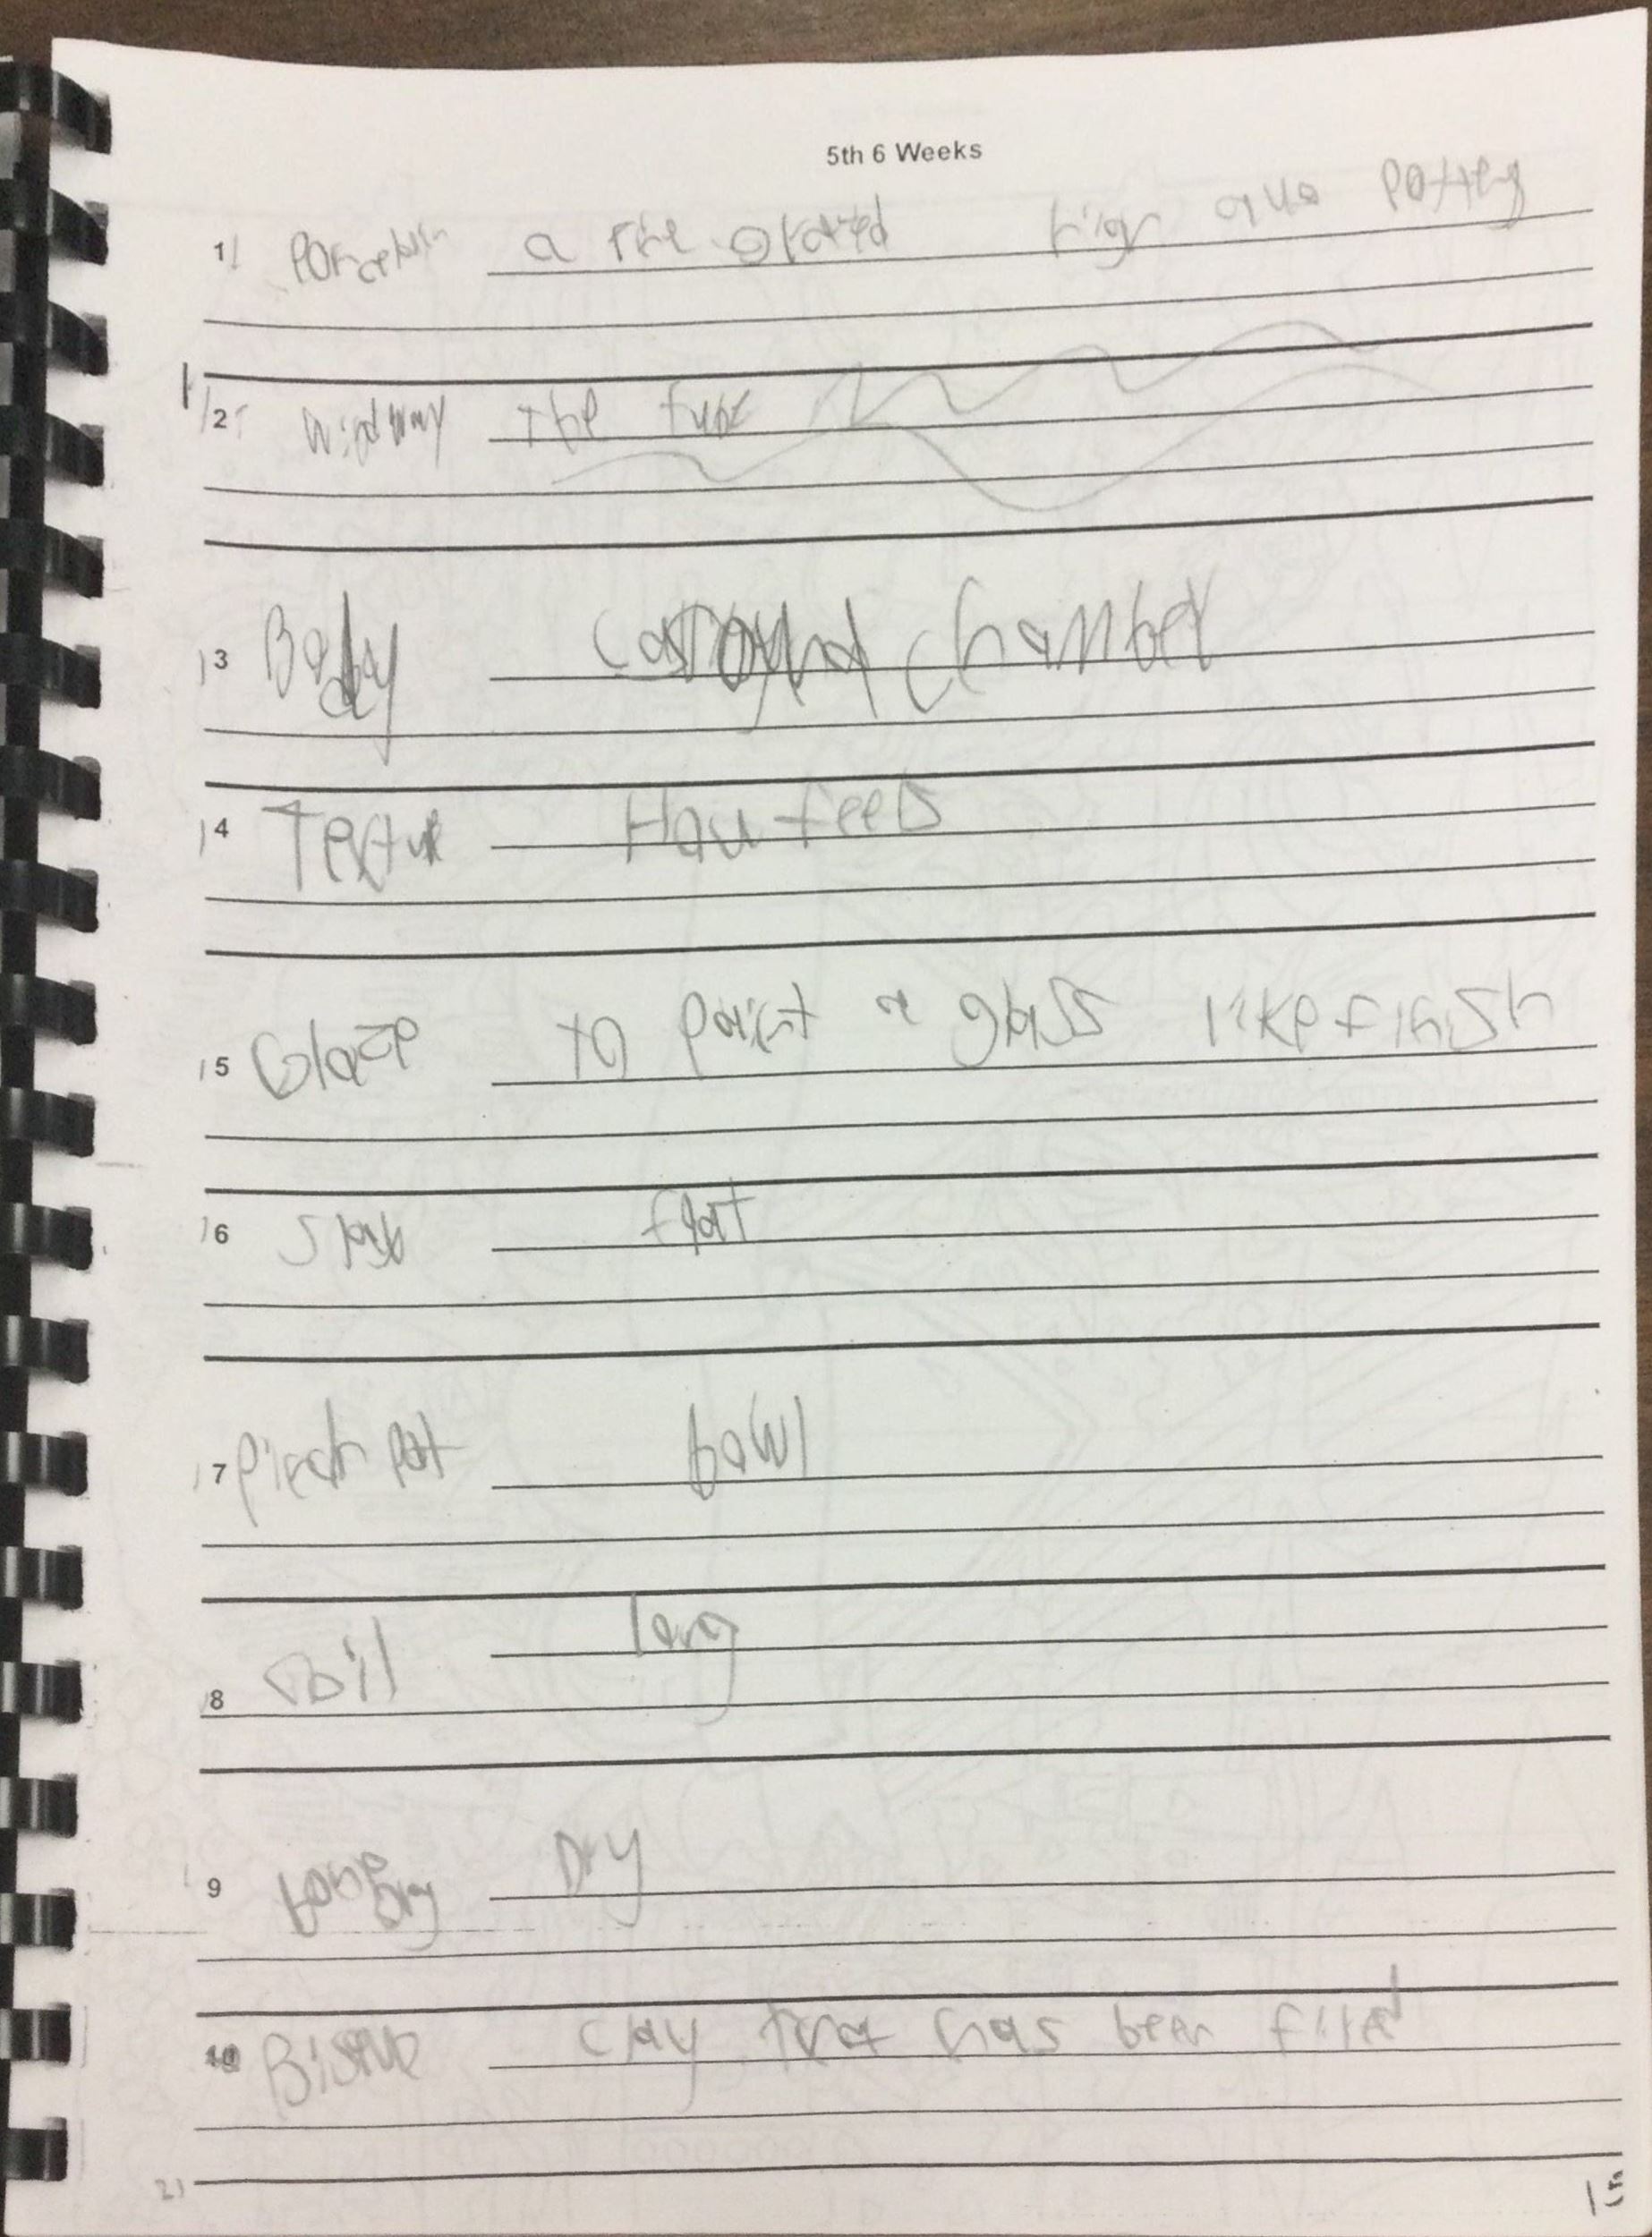 5th 6 Weeks
1 Porcelain a fine grated high qua Pottey
2 Windway The tube
3 Body chamber
4 Textue How feels
5 Glaze to paint a glass like finish
6 Slab flat
7 Pinch Pot bowl
8 Coil long
9 bone Dry Dry
10 Bisque clay that has been fired
21
15